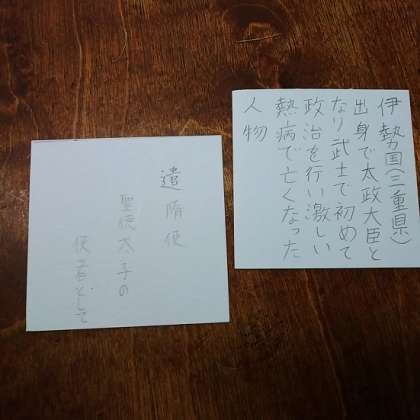 伊勢国(三重県)
出身で太政大臣と
なり武士で初めて
政治を行い激しい
熱病で亡くなった
人物
遣隋使
聖徳太子の
使者として